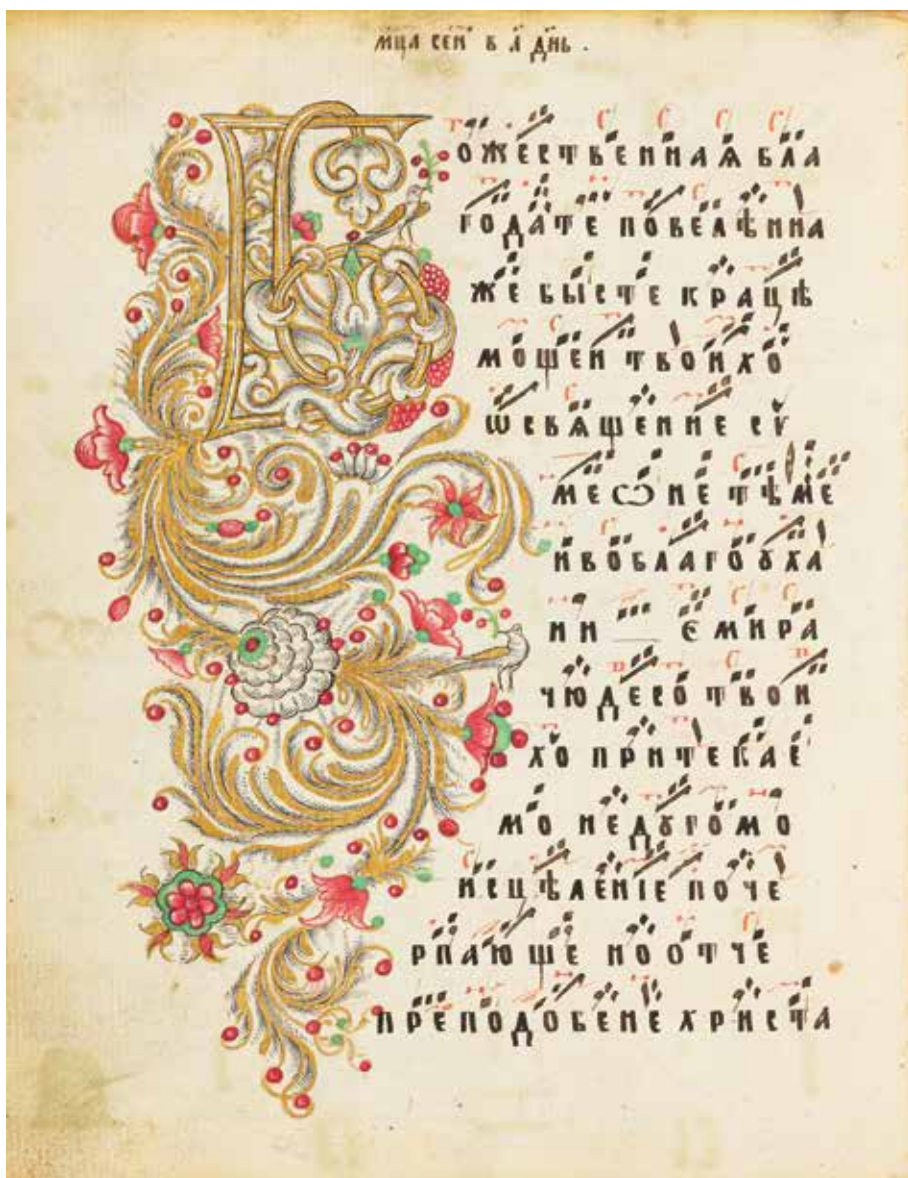 мц͠а сеⷨ в а҃ дн҃ь .
Божественная бла
годате повелѣнна
же бысте крацѣ
мощеи твоихо
ѡсвящение су
месѡ не тѣме
иво благоуха
ни е мира
чюдесо твои
хо притекае
мо недугомо
исцѣление поче
рпающе но отче
преподобене христа